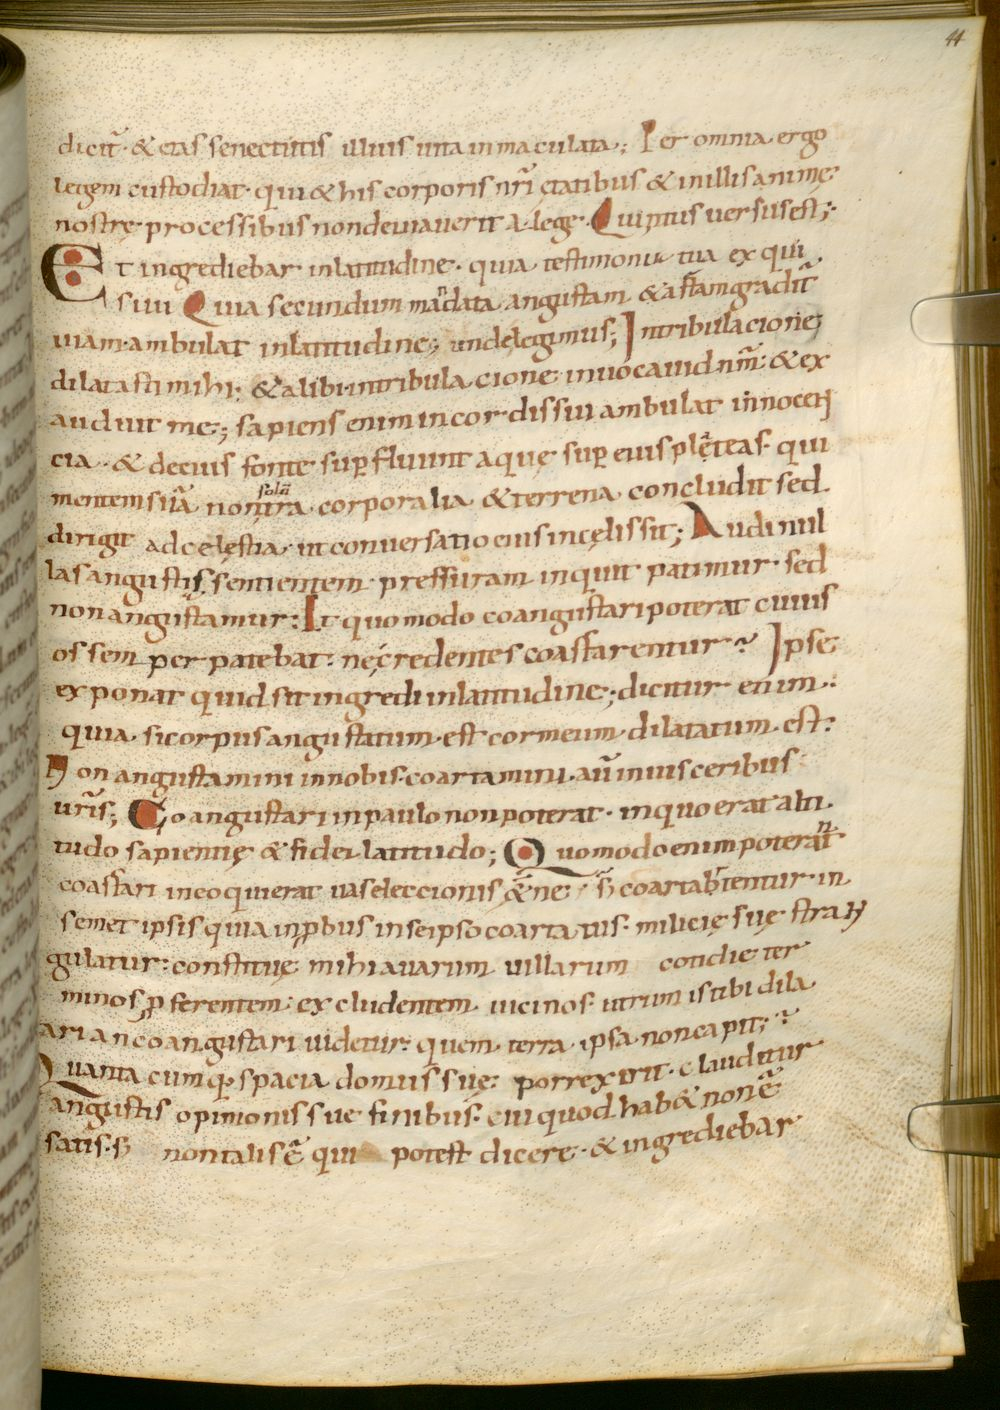 44
dicit̄· & ętas senectutis illius uita inmaculata; Per omnia ergo
legem custodiat· qui & his corporis nr̄i ętatibus & inillis animę·
nostrę· processibus nondeuiauerit A·lege· Quintus uersusest;·
Et ingrediebar inlatitudine· quia testimonia tua exqui
siui Quia secundum mandata angustam & astamgradit̄
uiam·ambulat inlatitudine; undelegimus; Intribulacione;
dilatastimihi· & alibi·intribulacione inuocauidnm̄· & ex
audiuit me; sapiens enim incordissui ambulat innocen
cia· & deeius fonte sup̱ fluunt aquę sup̱ eius plęteas· qui
mentemsuā non solū intra corporalia & terrena concludit sed
dirigit adcelęstia ut conuersatio eius incęlissit; Audi nul
las angustis sentientem· pressuram inquit patimur· sed
non angustamur: Et quomodo coangustaripoterat cuius
os semper patebat· nec̨redentes coastarentur? Ipse
exponat quid sit ingredi inlatitudine; dicitur enim·:
quia· sicorpusangustatum·est cormeum·dilatatum·est·
Non angustamini innobis·coartamini·aūinuisceribus
ur̄is; Coangustari inpaulo nonpoterat· inquo erat alti
tudo sapientię & fidei latitudo; Quomodoenimpoterant
coastari incoquierat uaseleccionis &̄ne· s̄ coartabuntentur·in
semet ipsis quia inp̱bus inseipsocoartatus· milicię suę stran
gulatur: constituę mihi auarum uillarum cotidie ter
minos p̱ferentem: excludentem uicinos· utrum istibi dila
ari an coangustari uidetur· quem terra ipsa noncapit;·?
Quanta cumq; spacia domus suę· porrexerit· clauditur
angustis opinionis sue finibus· cui quod hab& nonē
satis·s̄ nontalisē qui potest dicere· & ingrediebar